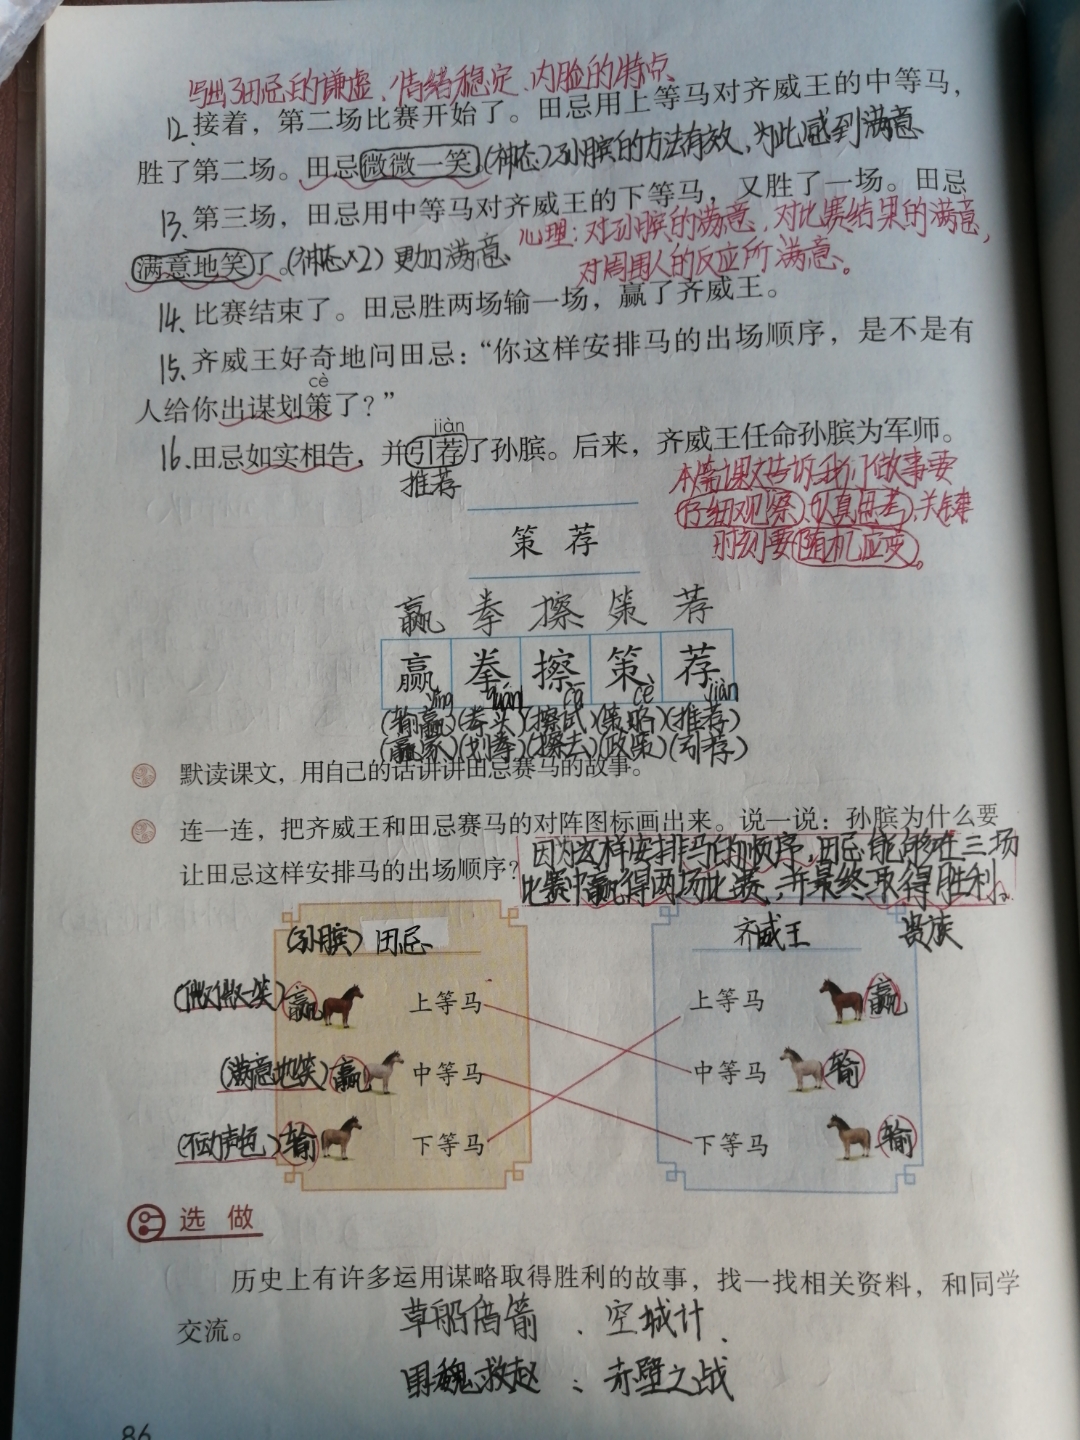 写出了田忌的谦虚、情绪稳定、内脸的特点、
12、接着，第二场比赛开始了。田忌用上等马对齐威王的中等马，
胜了第二场。田忌微微一笑。(神态)孙膑的方法有效，为此感到满意
13、第三场，田忌用中等马对齐威王的下等马，又胜了一场。田忌
心理：对孙膑的满意，对比赛结果的满意，
满意地笑了。(神态×2) 更加满意、
对周围人的反应所满意。
14、比赛结束了。田忌胜两场输一场，赢了齐威王。
15、齐威王好奇地问田忌：“你这样安排马的出场顺序，是不是有
cè
人给你出谋划策了？”
jiàn
16、田忌如实相告，并引荐了孙膑。后来，齐威王任命孙膑为军师。
推荐
本篇课文告诉我们做事要
仔细观察、认真思考、关键
时刻要随机应变。
策 荐
赢 拳 擦 策 荐
赢 拳 擦 策 荐
yíng quán cā cè jiàn
(输赢)(拳头)(擦拭)(策略)(推荐)
(赢家)(划拳)(擦去)(政策)(引荐)
默读课文，用自己的话讲讲田忌赛马的故事。
连一连，把齐威王和田忌赛马的对阵图标画出来。说一说：孙膑为什么要
让田忌这样安排马的出场顺序？
因为这样安排马的顺序，田忌能够在三场
比赛中赢得两场比赛，并最终取得胜利。
(孙膑) 田忌
齐威王 贵族
(微微一笑) 赢 上等马
上等马 赢
(满意地笑) 赢 中等马
中等马 输
(不动声色) 输 下等马
下等马 输
选 做
历史上有许多运用谋略取得胜利的故事，找一找相关资料，和同学
交流。
草船借箭 、空城计、
围魏救赵 、赤壁之战
86